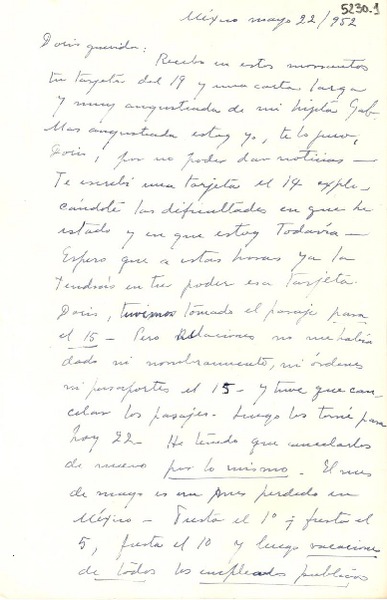 5230.1
México mayo 22/952
Doris querida:
Recibo en estos momentos
tu tarjeta del 19 y una carta larga
y muy angustiada de mi hijita Gab.
Mas angustiada estoy yo, te lo juro,
Doris, por no poder dar noticias —
Te escribí una tarjeta el 14 expli-
cándote las dificultades en que he
estado y en que estoy todavía —
Espero que a estas horas ya la
tendrás en tu poder esa tarjeta.
Doris, tuvimos tomado el pasaje para
el 15 — Pero Relaciones no me había
dado ni nombramiento, ni órdenes
ni pasaportes el 15 — y tuve que can-
celar los pasajes. Luego los tomé para
hoy 22 — He tenido que cancelarlos
de nuevo por lo mismo. El mes
de mayo es un mes perdido en
México — Fiesta el 1º y fiesta el
5, fiesta el 10 y luego vacaciones
de todos los empleados públicos